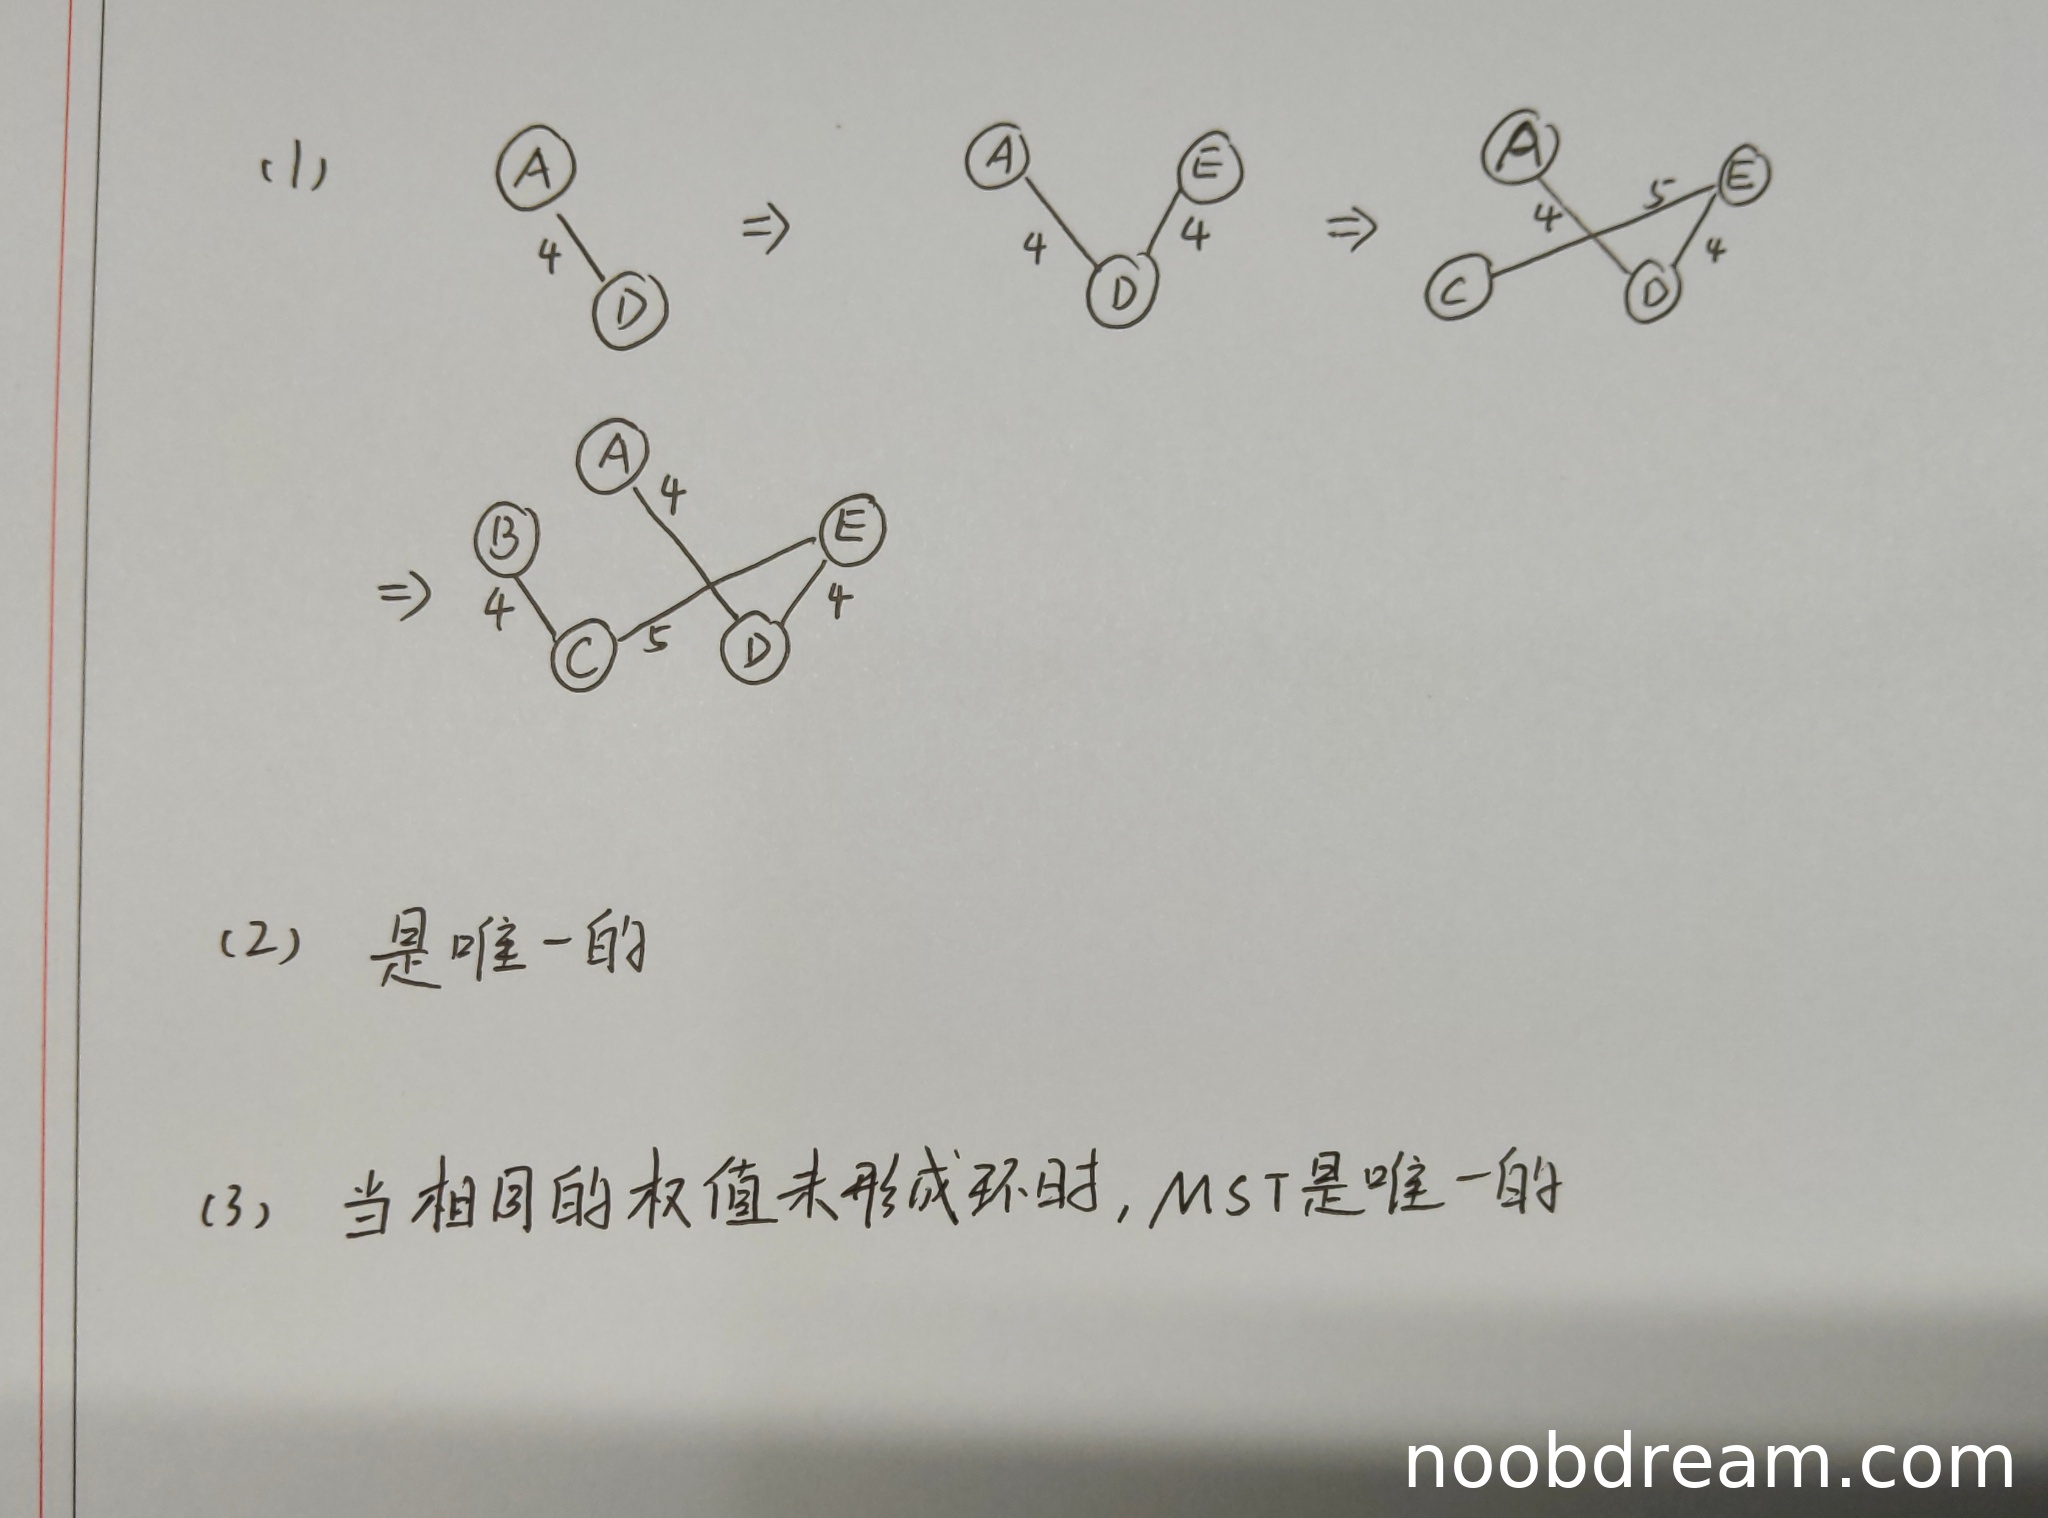 (1) A 4 D => A 4 D 4 E => A 4 5 E C D 4
=> A 4 B 4 C 5 D 4 E
(2) 是唯一的
(3) 当相同的权值未形成环时, MST是唯一的
noobdream.com